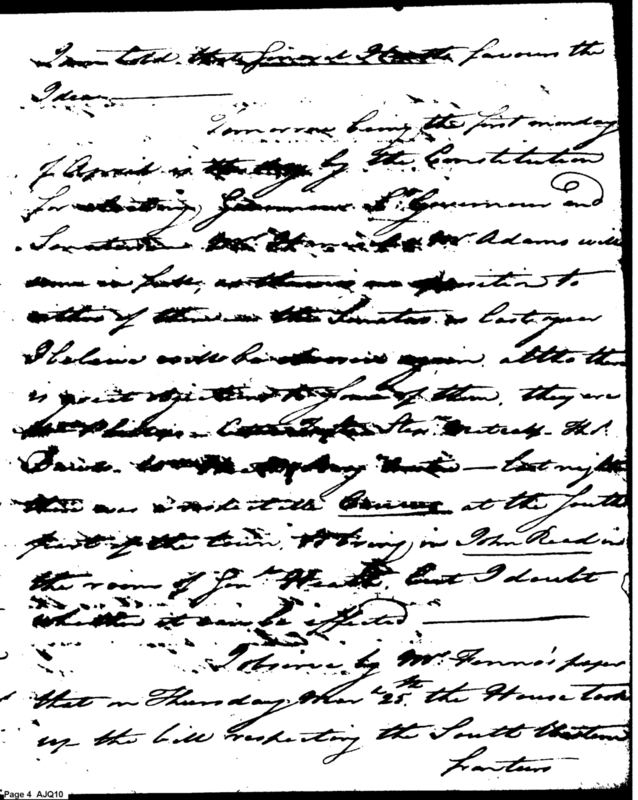 I am told that General Heath favours the
Idea
Tomorrow being the first monday
of April is the day by the Constitution
for electing Governour Lt. Governour and
Senators Mr. Hancock & Mr. Adams will
come in full, as there is no opposition to
either of them the Senators as last year
I beleive will be chosen again, altho there
is great objections to some of them, they are
Wm Phillips Stepn. Metcalf Ths.
Dawes last night
there was a respectable Caucus at the South
part of the town, to bring in John Read in
the room of Genl. Heath, But I doubt
whether it can be effected
I observe by Mr. Fenno's paper
that on Thursday Mar 25th. the House took
up the bill respecting the South Western
frontiers
Page 4 AJQ10